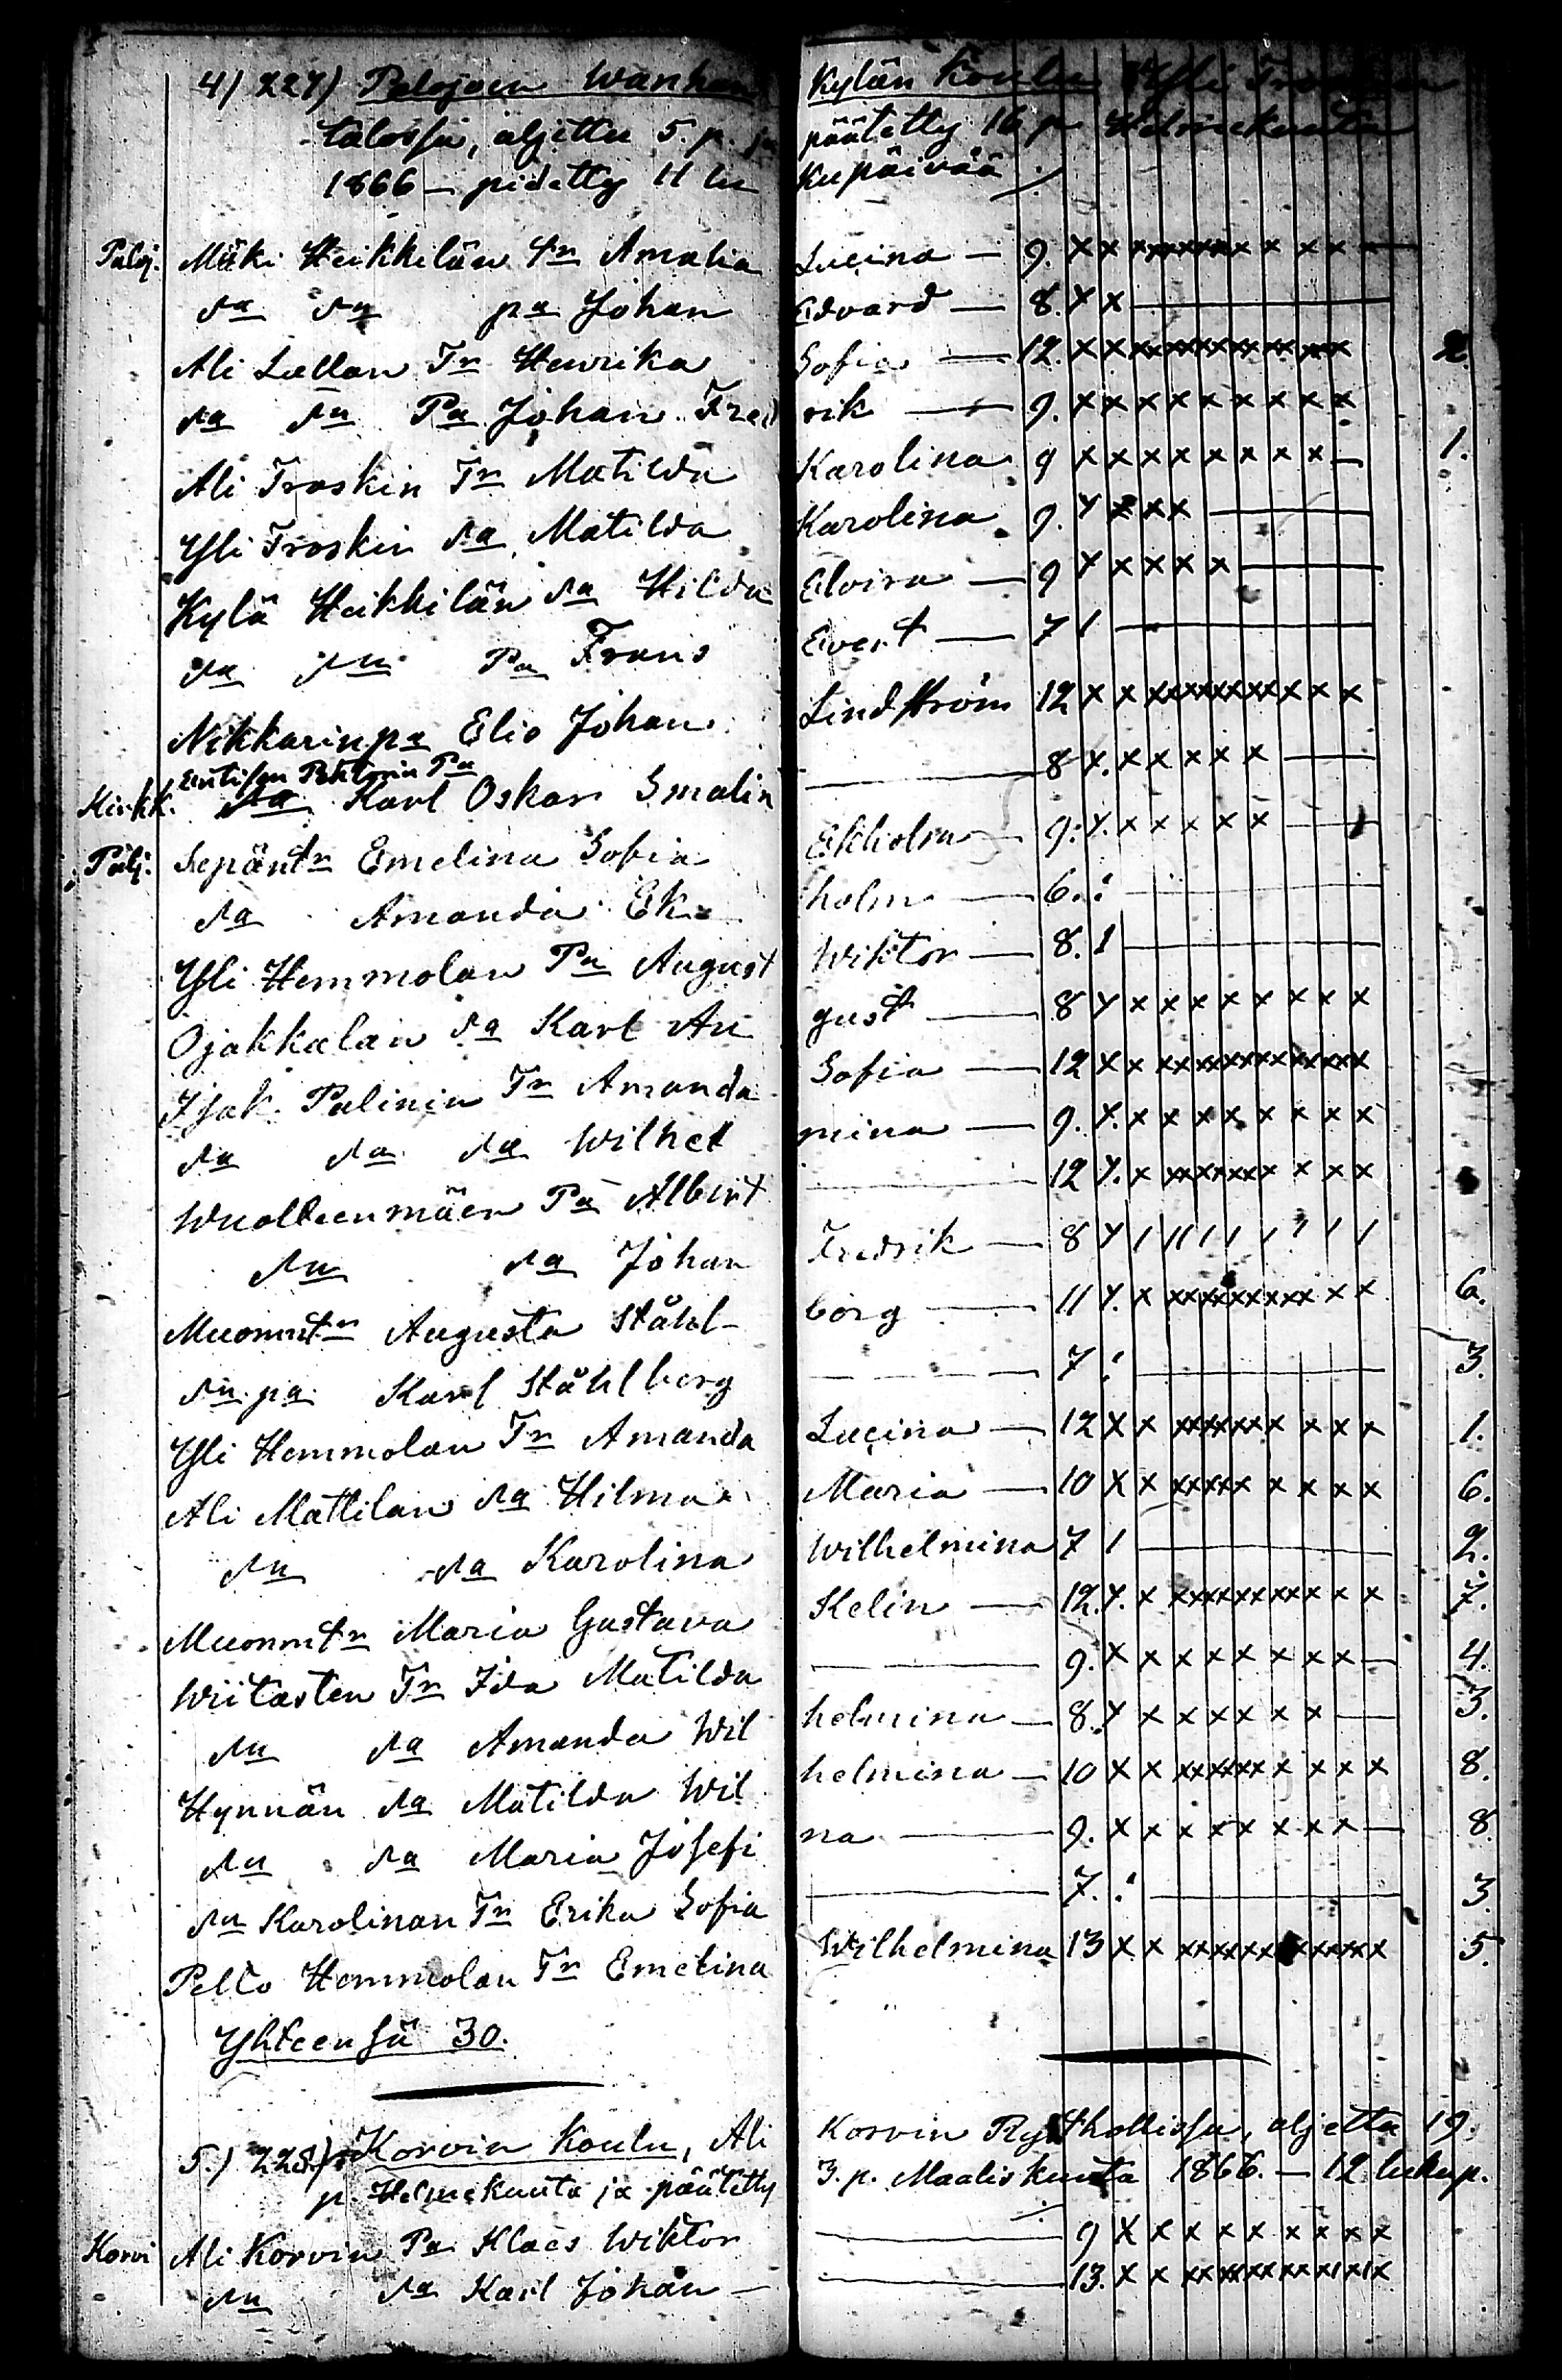 4) 227) Palojoen Wanhan Kylän Koulu Yli Troskin
talossa, aljettu 5. p. ja päätetty 16 p Helmekuuta
1866 — pidetty 11 lu kupäivää
Paloj. Mäki Heikkilän tr Amalia Lucina — 9. x x x x x x x x x x x x x
da da pa Johan Edvard — 8. x x —
Ali Lallan Tr Henrika Sofia — 12. x x x x x x x x x x x x x 2
da da Pa Johan Fred rik — 9. x x x x x x x x x
Ali Troskin Tr Matilda Karolina 9 x x x x x x x x — 1.
Yli Troskin da Matilda Karolina 9. x x x x —
Kylä Heikkilän da Hilda Elvira — 9 x x x x x —
da da Pa Frans Evert — 7 1 —
Nikkarin pa Elis Johan Lindström 12 x x x x x x x x x x x x x
Entisen Pehtorin Pa
Kirkk. da Karl Oskar Smalin — 8 x x x x x x —
Palj. Sepän tr Emelina Sofia Ekholm — 9. x x x x x x —
da Amanda Ek holm — 6. : —
Yli Hemmolan Pa August Wiktor — 8. 1 —
Ojakkalan da Karl Au gust — 8 x x x x x x x x x
Isak. Palinin Tr Amanda Sofia — 12 x x x x x x x x x x x x x
da da da Wilhel mina — 9. x x x x x x x x x
Wuolteenmäen Pa Albert — 12 x x x x x x x x x x x x
da da Johan Fredrik — 8 x / / / / / / / / /
Muonmtr Augusta Ståhl- borg — 11 x x x x x x x x x x x x x 6.
da. pa. Karl Ståhlberg — 7 : — 3.
Yli Hemmolan Tr Amanda Lucina — 12 x x x x x x x x x x x x 1.
Ali Mattilan da Hilma Maria — 10 x x x x x x x x x x x 6.
da da Karolina Wilhelmina 7 1 — 2.
Muonmtr Maria Gustava Kelin — 12. x x x x x x x x x x x x x 7.
Wiitasten Tr Ida Matilda — 9. x x x x x x x x — 4.
da da Amanda Wil helmina — 8. x x x x x x x — 3.
Hynnän da Matilda Wil helmina — 10 x x x x x x x x x x x x 8.
da da Maria Josefi na — 9. x x x x x x x x — 8
da Karolinan Tr Erika Sofia — 7. : — 3
Pello Hemmolan Tr Emelina Wilhelmina 13 x x x x x x x x x x x x x 5.
Yhteensä 30.
5.) 228) Korvin Koulu, Ali Korvin Rysthollissa, aljettu 19.
p. Helmekuuta ja päätetty 3. p. Maaliskuuta 1866. — 12 lukup.
Korvi Ali Korvin Pa Klaes Wiktor — 9 x x x x x x x x x
da da Karl Johan — 13. x x x x x x x x x x x x x